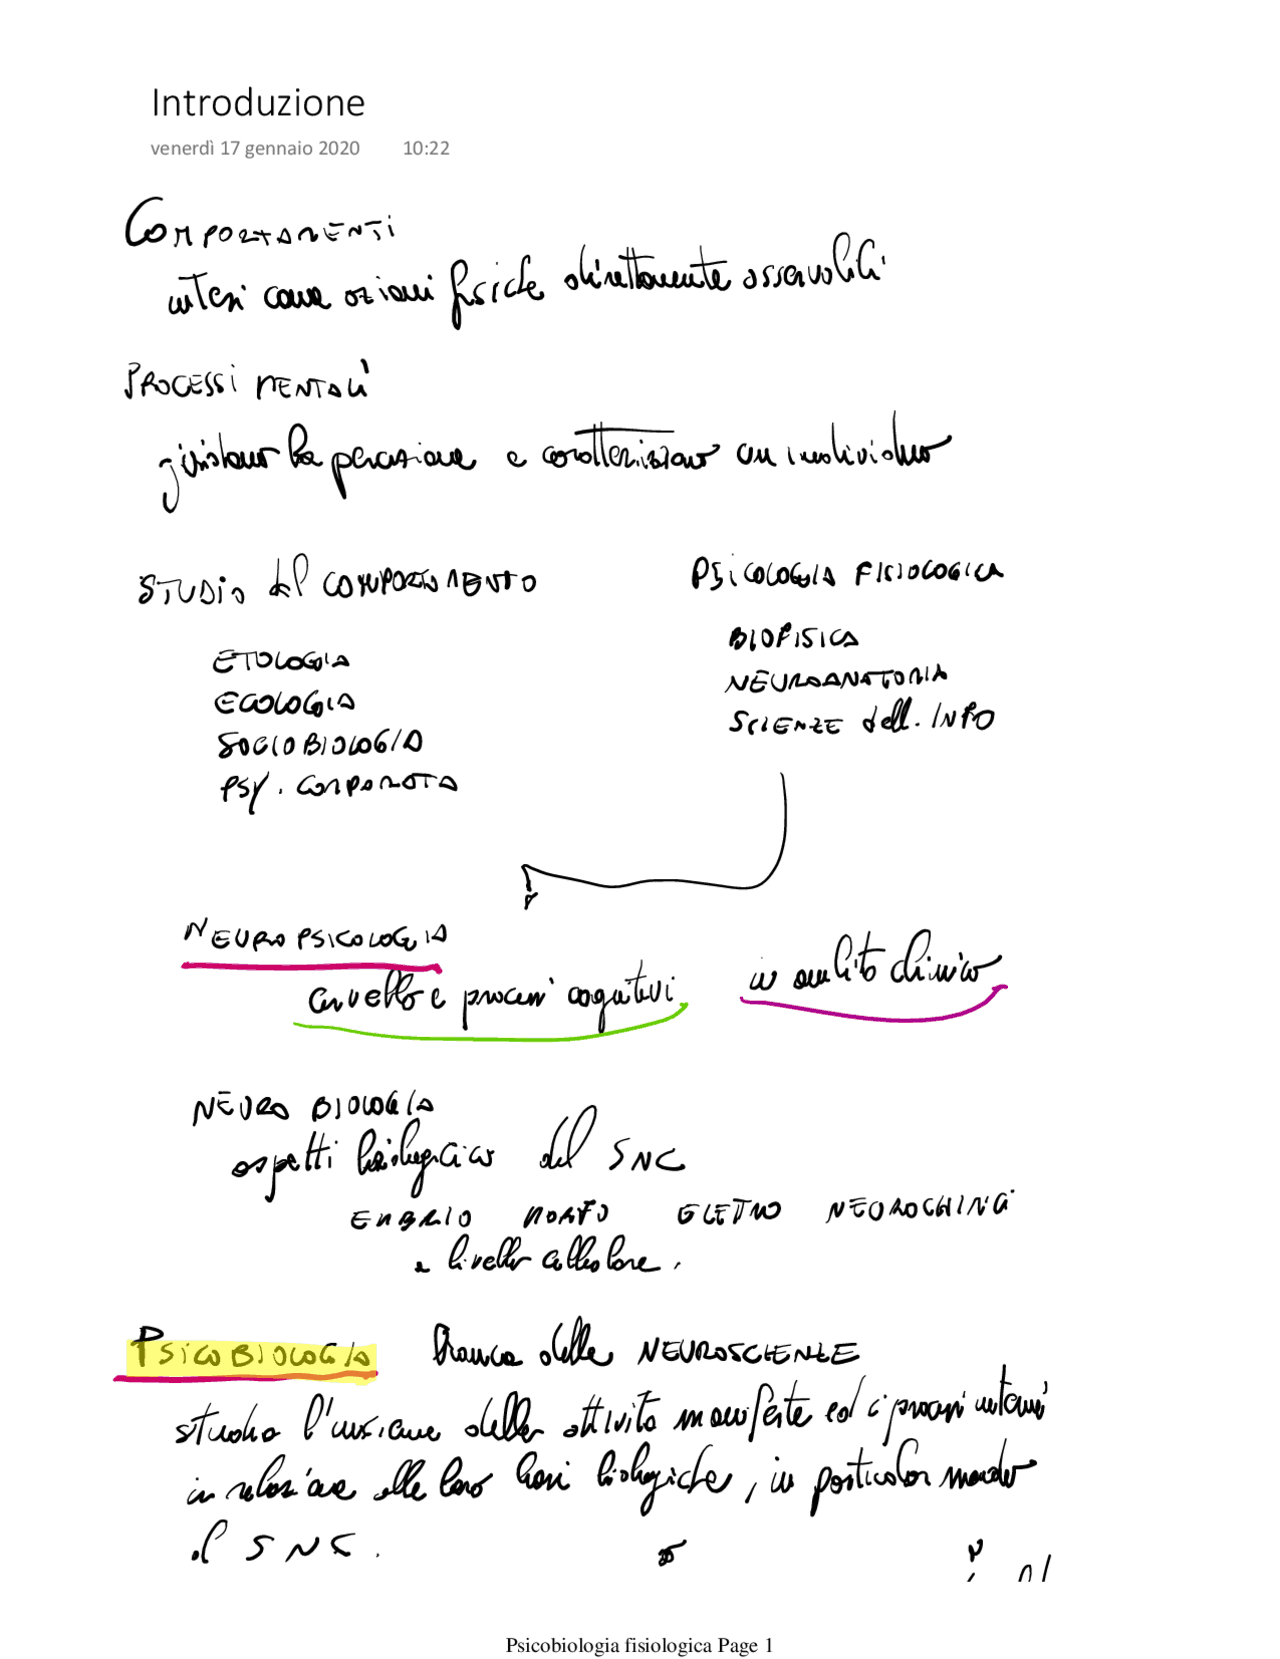 Introduzione
venerdì 17 gennaio 2020 10:22
COMPORTAMENTI
intesi come azioni fisiche direttamente osservabili
PROCESSI MENTALI
la percezione e caratterizzano un individuo
STUDIO del COMPORTAMENTO
PSICOLOGIA FISIOLOGICA
ETOLOGIA
ECOLOGIA
SOCIOBIOLOGIA
PSY. COMPARATA
BIOFISICA
NEUROANATOMIA
SCIENZE dell. INFO
NEUROPSICOLOGIA
cervello e processi cognitivi in ambito clinico
NEURO BIOLOGIA
aspetti del SNC
EMBRIO MORFO ELETTRO NEUROCHIMICI
a livello cellulare.
PSICOBIOLOGIA branca delle NEUROSCIENZE
studia l'unione delle attività manifeste ed i processi interni
in relazione alle loro basi biologiche, in particolar modo
il SNC.
Psicobiologia fisiologica Page 1